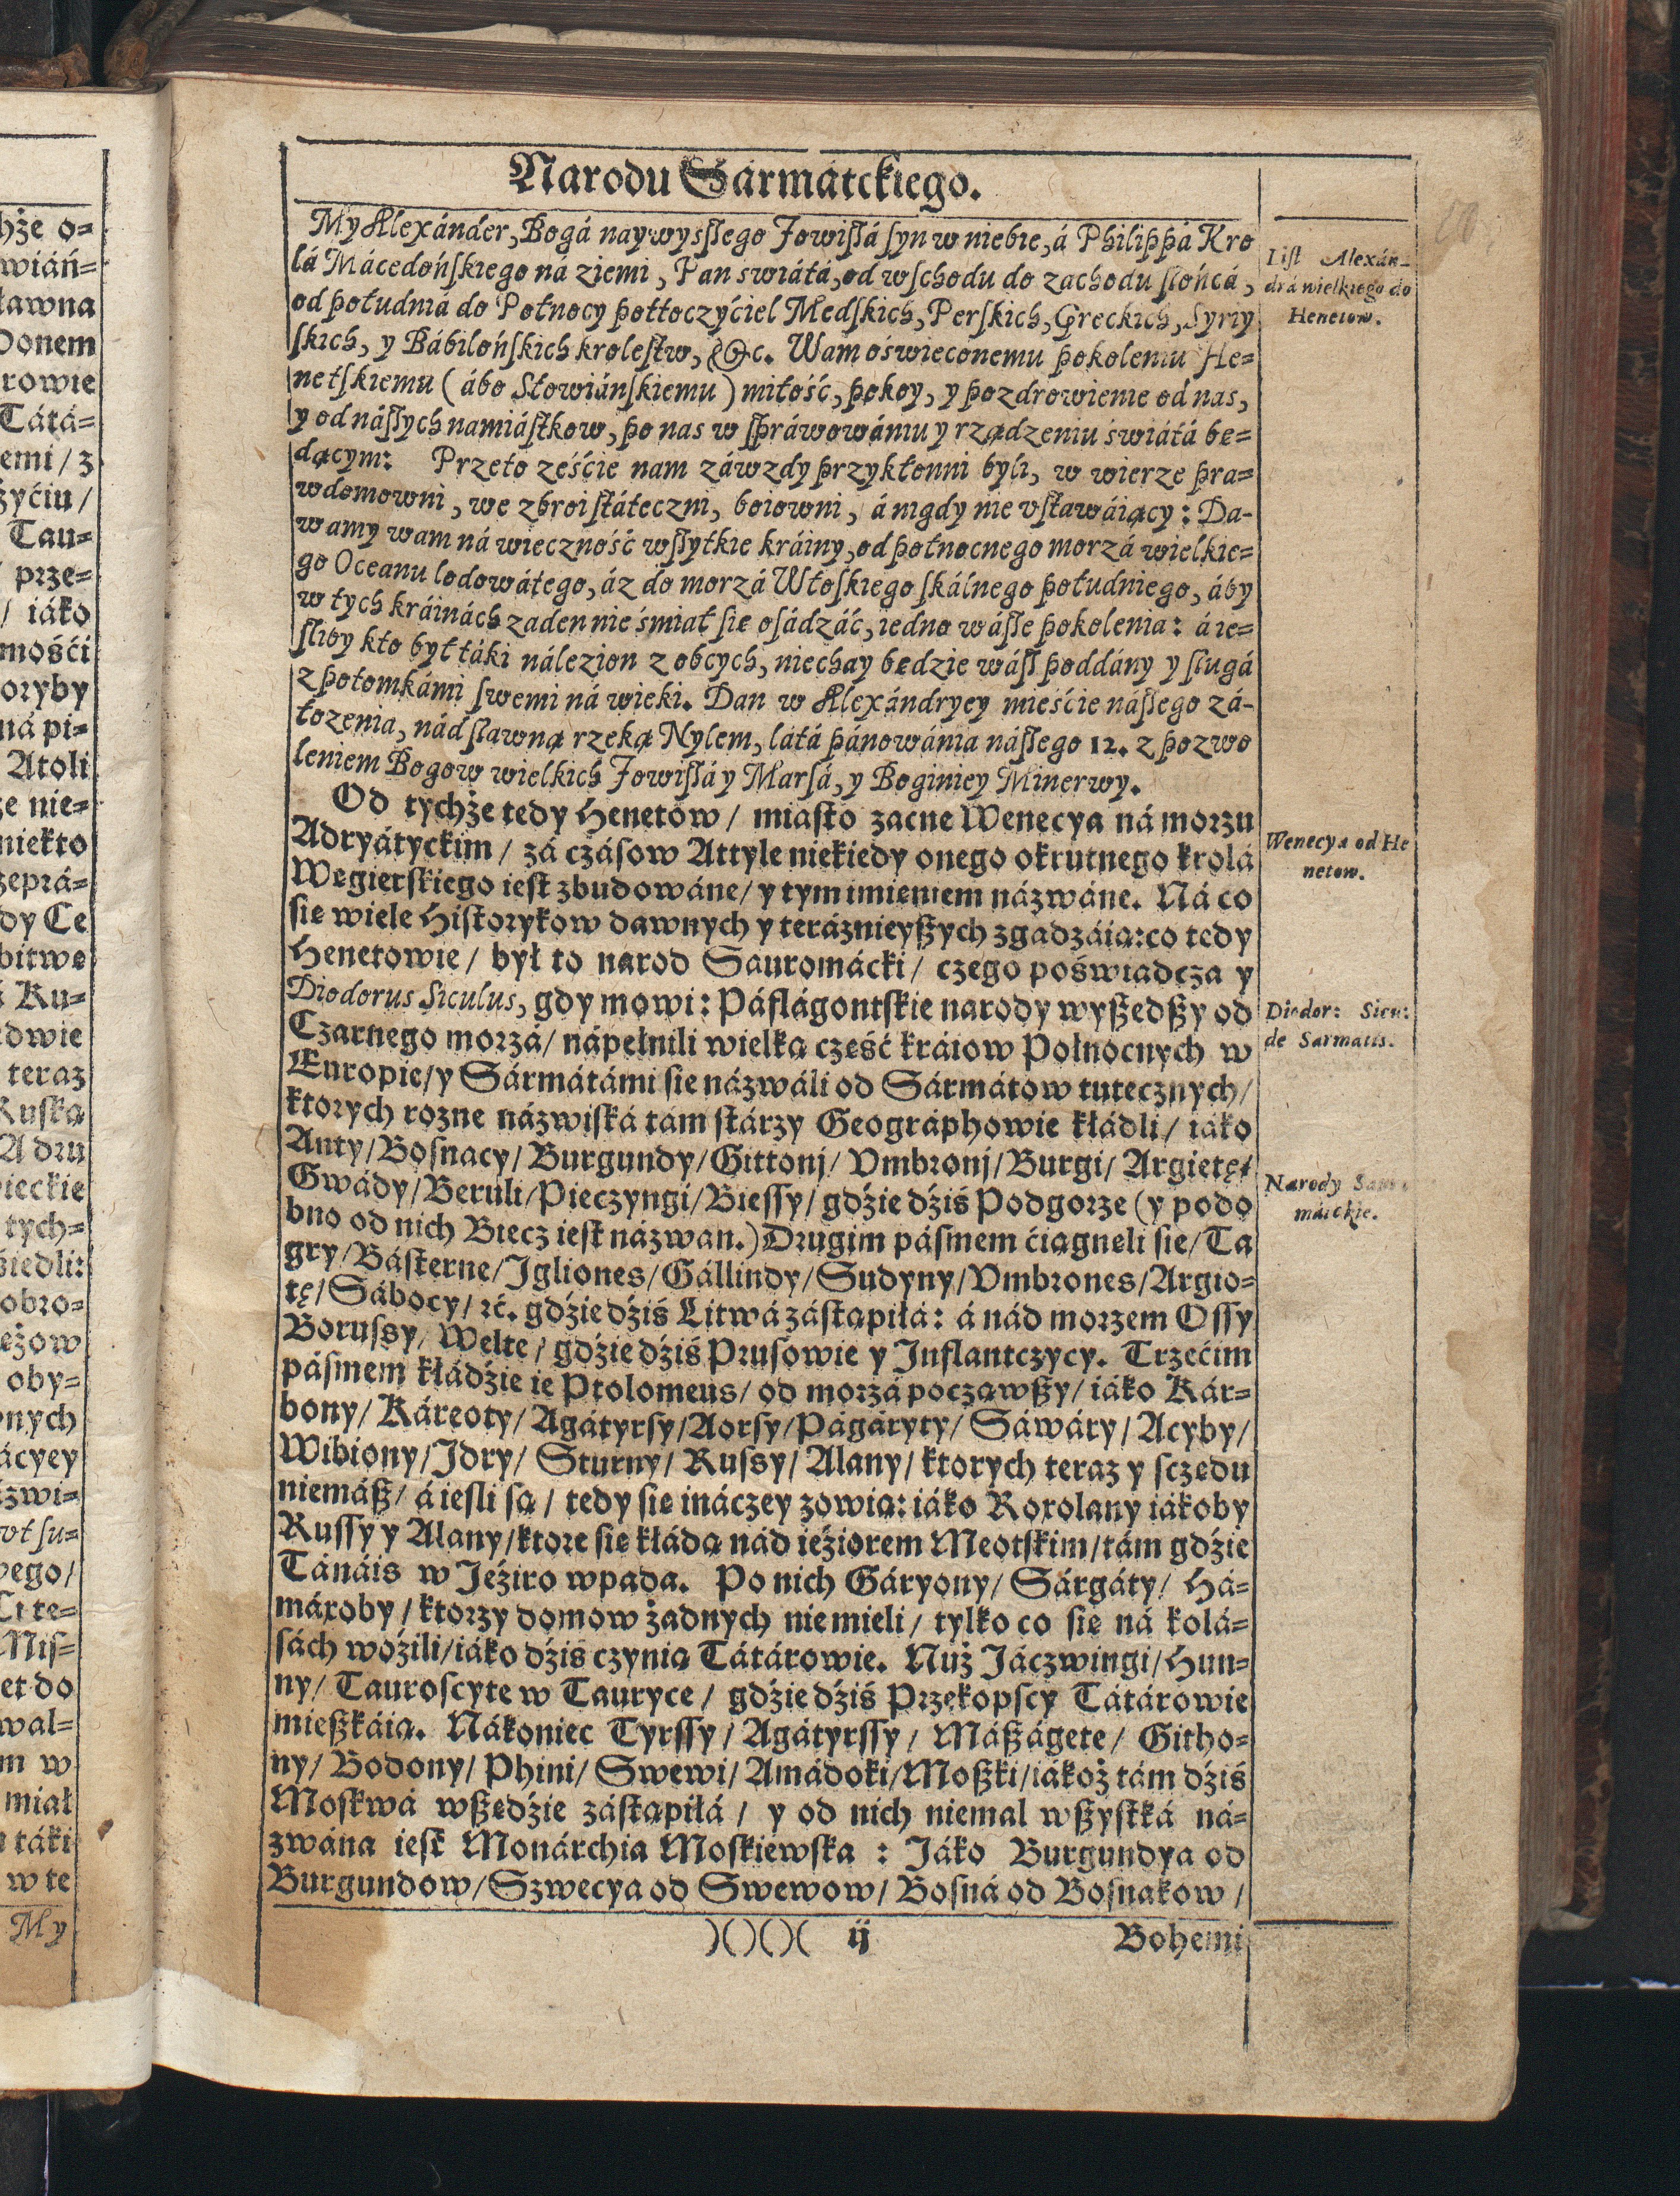 Narodu Sármátckiego.
My Alexánder, Bogá naywyſſego Jowiſſá ſyn w niebie, á Philippá Kro
lá Mácedońſkiego ná ziemi, Pan świátá, od wſchodu do zachodu słońcá,
od południá do Połnocy pottoczyćiel Medſkich, Perſkich, Greckich, Syriy
ſkich, y Bábilońſkich kroleſtw, &c. Wam oświeconemu pokoleniu He=
netſkiemu (ábo Słowiánſkiemu) miłość, pokoy, y pozdrowienie od nas,
y od náſſych namiáſtkow, po nas w ſpráwowániu y rządzeniu świátá bę=
dącym: Przeto żeśćie nam záwzdy przykłonni byli, w wierze pra=
wdomowni, we zbroi ſtáteczni, boiowni, á nigdy nie vſtawáiący: Da-
wamy wam ná wieczność wſſytkie kráiny, od połnocnego morzá wielkie=
go Oceanu lodowátego, áz do morzá Włoſkiego ſkálnego południego, áby
w tych kráinách zaden nie śmiał ſie oſádzáć, iedno wáſſe pokolenia: á ie=
ſliby kto był táki nálezion z obcych, niechay będzie wáſſ poddány y ſługá
z potomkámi ſwemi ná wieki. Dan w Alexándryey mieśćie náſſego zá-
łozenia, nád ſławną rzeką Nylem, látá pánowánia náſſego 12. z pozwo
leniem Bogow wielkich Jowiſſá y Marſá, y Boginiey Minerwy.
Od tychże tedy Henetow/ miaſto zacne Wenecya ná morzu
Adryátyckim/ zá czáſow Attyle niekiedy onego okrutnego krolá
Węgierſkiego ieſt zbudowáne/ y tym imieniem názwáne. Ná co
ſie wiele Hiſtorykow dawnych y teráznieyßych zgadzáią: co tedy
Henetowie/ był to narod Sauromácki/ czego poświadcza y
Diodorus Siculus, gdy mowi: Páflágontſkie narody wyßedßy od
Czarnego morzá/ nápełnili wielką cześć kráiow Połnocnych w
Europie/ y Sármátámi ſie názwáli od Sármátow tutecznych/
ktorych rozne názwiſká tám ſtárzy Geográphowie kłádli/ iáko
Anty/ Boſnacy/ Burgundy/ Gittonj/ Vmbronj/ Burgi/ Argietę/
Gwády/ Beruli/ Pieczyngi/ Bieſſy/ gdźie dźiś Podgorze (y podo
bno od nich Biecz ieſt názwan.) Drugim páſmem ćiągneli ſie/ Ta
gry/ Báſterne/ Igliones/ Gállindy/ Sudyny/ Vmbrones/ Argio=
tę/ Sábocy/ ꝛć. gdźie dźiś Litwá záſtąpiłá: á nád morzem Oſſy
Boruſsy/ Welte/ gdźie dźiś Pruſowie y Inflantczycy. Trzećim
páſmem kłádźie ie Ptolomeus/ od morzá począwßy/ iáko Kár=
bony/ Káreoty/ Agátyrſy/ Aorſy/ Págáryty/ Sáwáry/ Acyby/
Wibiony/ Jdry/ Sturny/ Ruſsy/ Alany/ ktorych teraz y ſczędu
niemáß/ á ieſli ſą/ tedy ſie ináczey zowią: iáko Roxolany iákoby
Ruſſy y Alany/ ktore ſie kłádą nád ieźiorem Meotſkim/ tám gdźie
Tánáis w Jeźiro wpada. Po nich Gáryony/ Sárgáty/ Há=
máxoby/ ktorzy domow żadnych nie mieli/ tylko co ſię ná kolá=
ſách woźili/ iáko dźiś czynią Tátárowie. Nuż Jáczwingi/ Hun=
ny/ Tauroſcyte w Tauryce/ gdźie dźiś Przekopſcy Tátárowie
mießkáią. Nákoniec Tyrſſy/ Agátyrſſy/ Máßágete/ Githo=
ny/ Bodony/ Phini/ Swewi/ Amádoki/ Moßki/ iákoż tám dźiś
Moſkwá wßędźie záſtąpiłá/ y od nich niemal wßyſtká ná=
zwána ieſt Monárchia Moſkiewſka: Jáko Burgundya od
Burgundow/ Szwecya od Swewow/ Boſná od Boſnakow/
)()()( ij
Bohemi
Liſt Alexán-
drá wielkiego do
Henetow.
Wenecya od He
netow.
Diodor: Sicu:
de Sarmatis.
Narody
máickie.
hże o=
wiáń=
ławna
Donem
rowie
Tátá=
emi/ z
życiu/
Tau=
prze=
/ iáko
mośći
oryby
ná pi=
Atoli
że nie=
niekto
zeprá=
dy Ce
bitwe
i Ku=
dwie
teraz
Ruſką
A dru
ieckie
tych=
śiedli:
obro=
eżow
oby=
nych
ácyey
zwi=
vt ſu=
ego/
Ci te=
Niſ=
et do
wal=
m w
miał
táki
w te
My